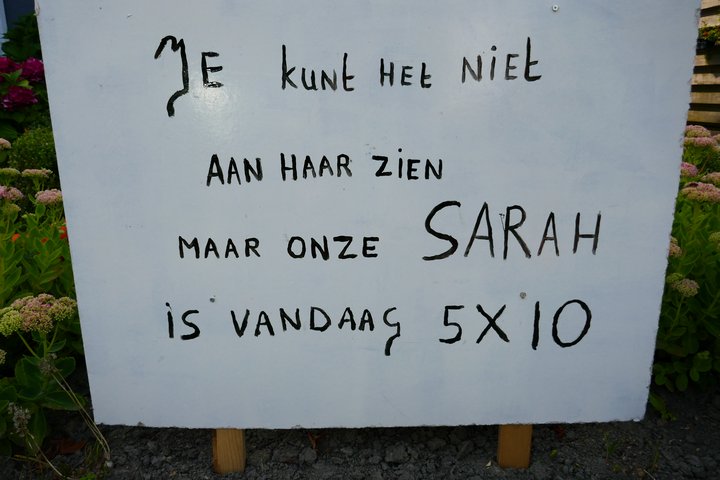 JE kunt HET NIET
AAN HAAR ZIEN
MAAR ONZE SARAH
is VANDAAG 5X10